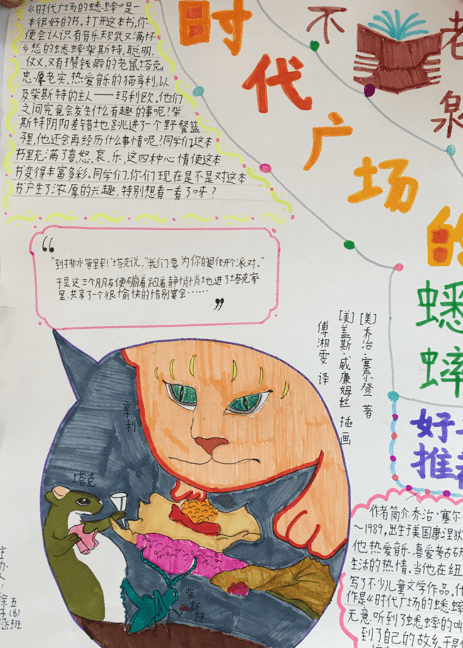 《时代广场的蟋蟀》是一
本很好的书。打开这本书,你
便会认识有音乐
乡愁的蟋蟀柴斯特,聪明、
仗义,又有攒钱癖的老鼠塔克,
忠厚老实、热爱音乐的猫亨利,以
及柴斯特的主人——玛利欧,他们
之间究竟会发生什么有趣的事呢?柴
斯特阴阳差错地跳进了一个野餐篮
里,他还会再经历什么事情呢!同学们,这本
书里充满了喜、怒、哀、乐,这四种心情使这本
书变得丰富多彩,同学们,你们现在是不是对这本
书产生了浓厚的兴趣,特别想看一看了呀?
时代广场的
蟋蟀
不
老
泉
好
推荐
“到排水管里来!”塔克说,“我们要为你的到任开个派对。”
里,共享了一个很愉快的
[美]乔治·塞尔登 著
[美]盖斯·威廉姆丝 插画
傅湘雯 译
亨利
塔克
柴斯特
作者简介:乔治·塞尔
~1989,出生于美国康涅狄
他热爱音乐、喜爱考古研
生活的热情,当他在纽
写了不少儿童文学作品,代
作是《时代广场的蟋蟀
无意听到了蟋蟀的叫
到了自己的故乡,于是
五
(8)
班